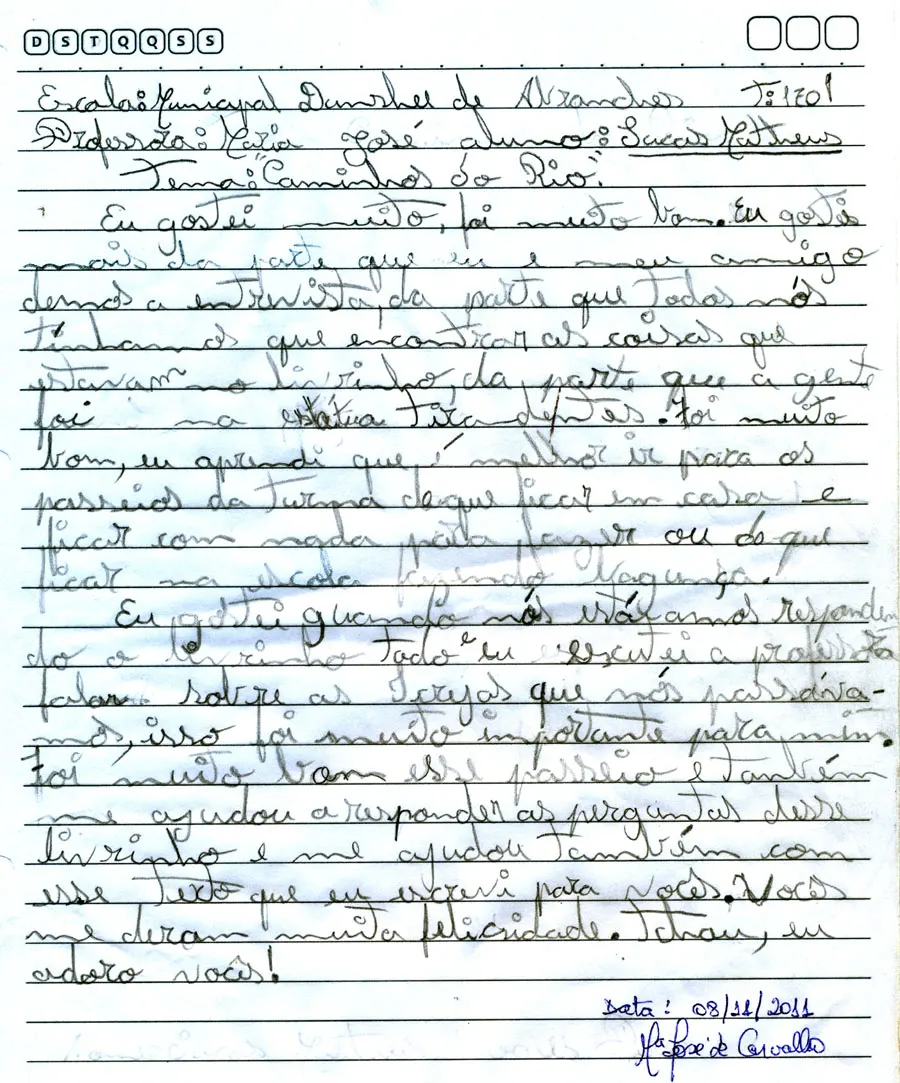 D S T Q Q S S
Escola: Municipal Dunshee de Abranches T: 1701
Professora: Maria José aluno: Lucas Matheus
Tema: "Caminhos do Rio".
Eu gostei muito, foi muito bom. Eu gostei
mais da parte que eu e meu amigo
demos a entrevista, da parte que todos nós
tínhamos que encontrar as coisas que
estavam no livrinho, da parte que a gente
foi na estátua Tiradentes. Foi muito
bom, eu aprendi que é melhor ir para os
passeios da turma do que ficar em casa e
ficar com nada para fazer ou do que
ficar na escola fazendo bagunça.
Eu gostei quando nós estávamos responden
do o livrinho todo e eu escutei a professora
falar sobre as Igrejas que nós passáva-
mos, isso foi muito importante para mim.
Foi muito bom esse passeio e também
me ajudou a responder as perguntas desse
livrinho e me ajudou também com
esse texto que eu escrevi para vocês. Vocês
me deram muita felicidade. Tchau, eu
adoro vocês!
Data: 08/11/2011
Mª José de Carvalho